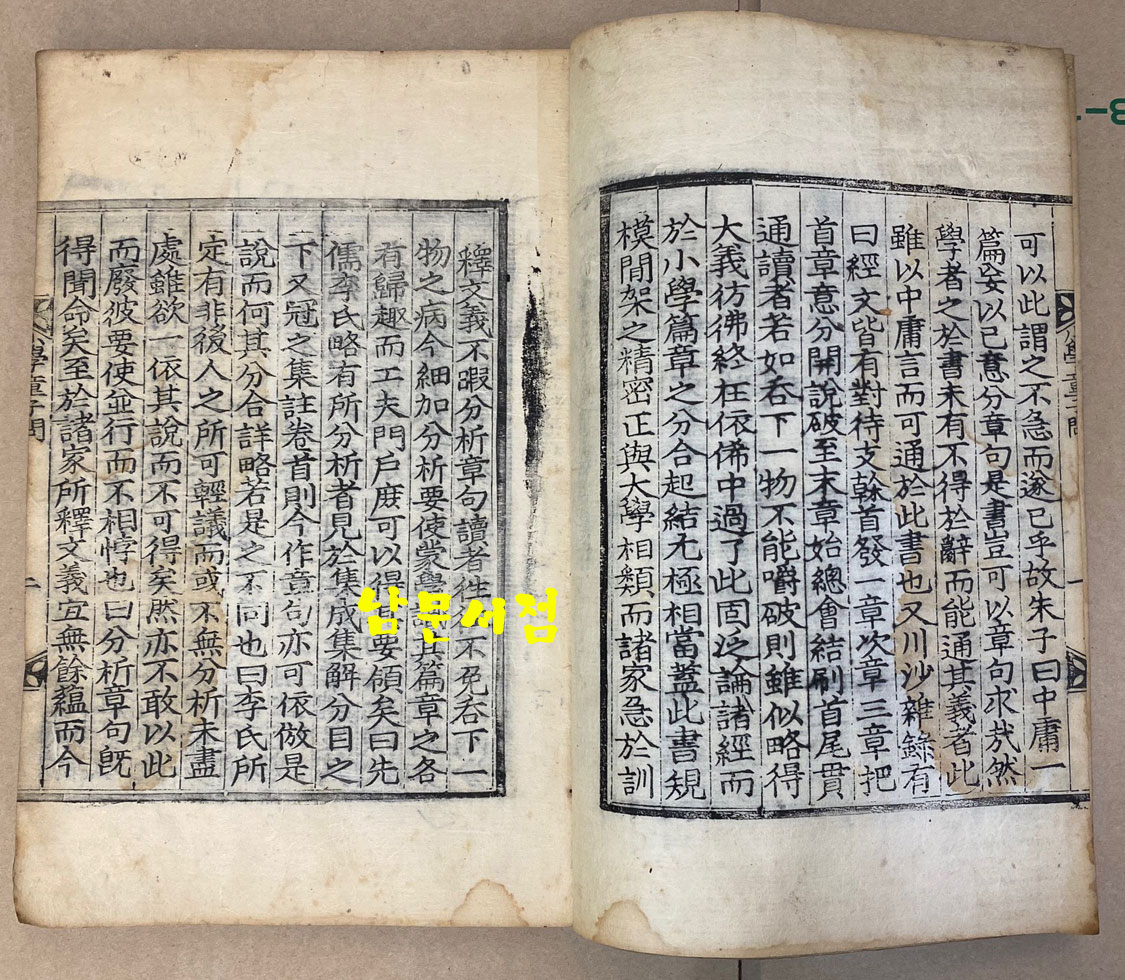 可以此謂之不急而遂已乎故朱子曰中庸一
篇妄以己意分章句是書豈可以章句求㢤然
學者之於書未有不得於辭而能通其義者此
雖以中庸言而可通於此書也又川沙雜錄有
曰經文皆有對待支榦首發一章次章三章把
首章意分開說破至末章始總會結刷首尾貫
通讀者若如呑下一物不能嚼破則雖似略得
大義彷彿終在依俙中過了此固泛論諸經而
於小學篇章之分合起結尢極相當蓋此書規
模間架之精密正與大學相類而諸家急於訓
釋文義不暇分析章句讀者徃 不免呑下一
物之病今細加分析要使蒙學 其篇章之各
有歸趣而工夫門戶庶可以得 要領矣曰先
儒李氏略有所分析者見於集成集解分目之
下又冠之集註卷首則今作章句亦可依倣是
說而何其分合詳略若是之不同也曰李氏所
定有非後人之所可輕議而或不無分析未盡
處雖欲一依其說而不可得矣然亦不敢以此
而廢彼要使並行而不相悖也曰分析章句旣
得聞命矣至於諸家所釋文義宜無餘蘊而今
學章
一
學章
二
남문서점